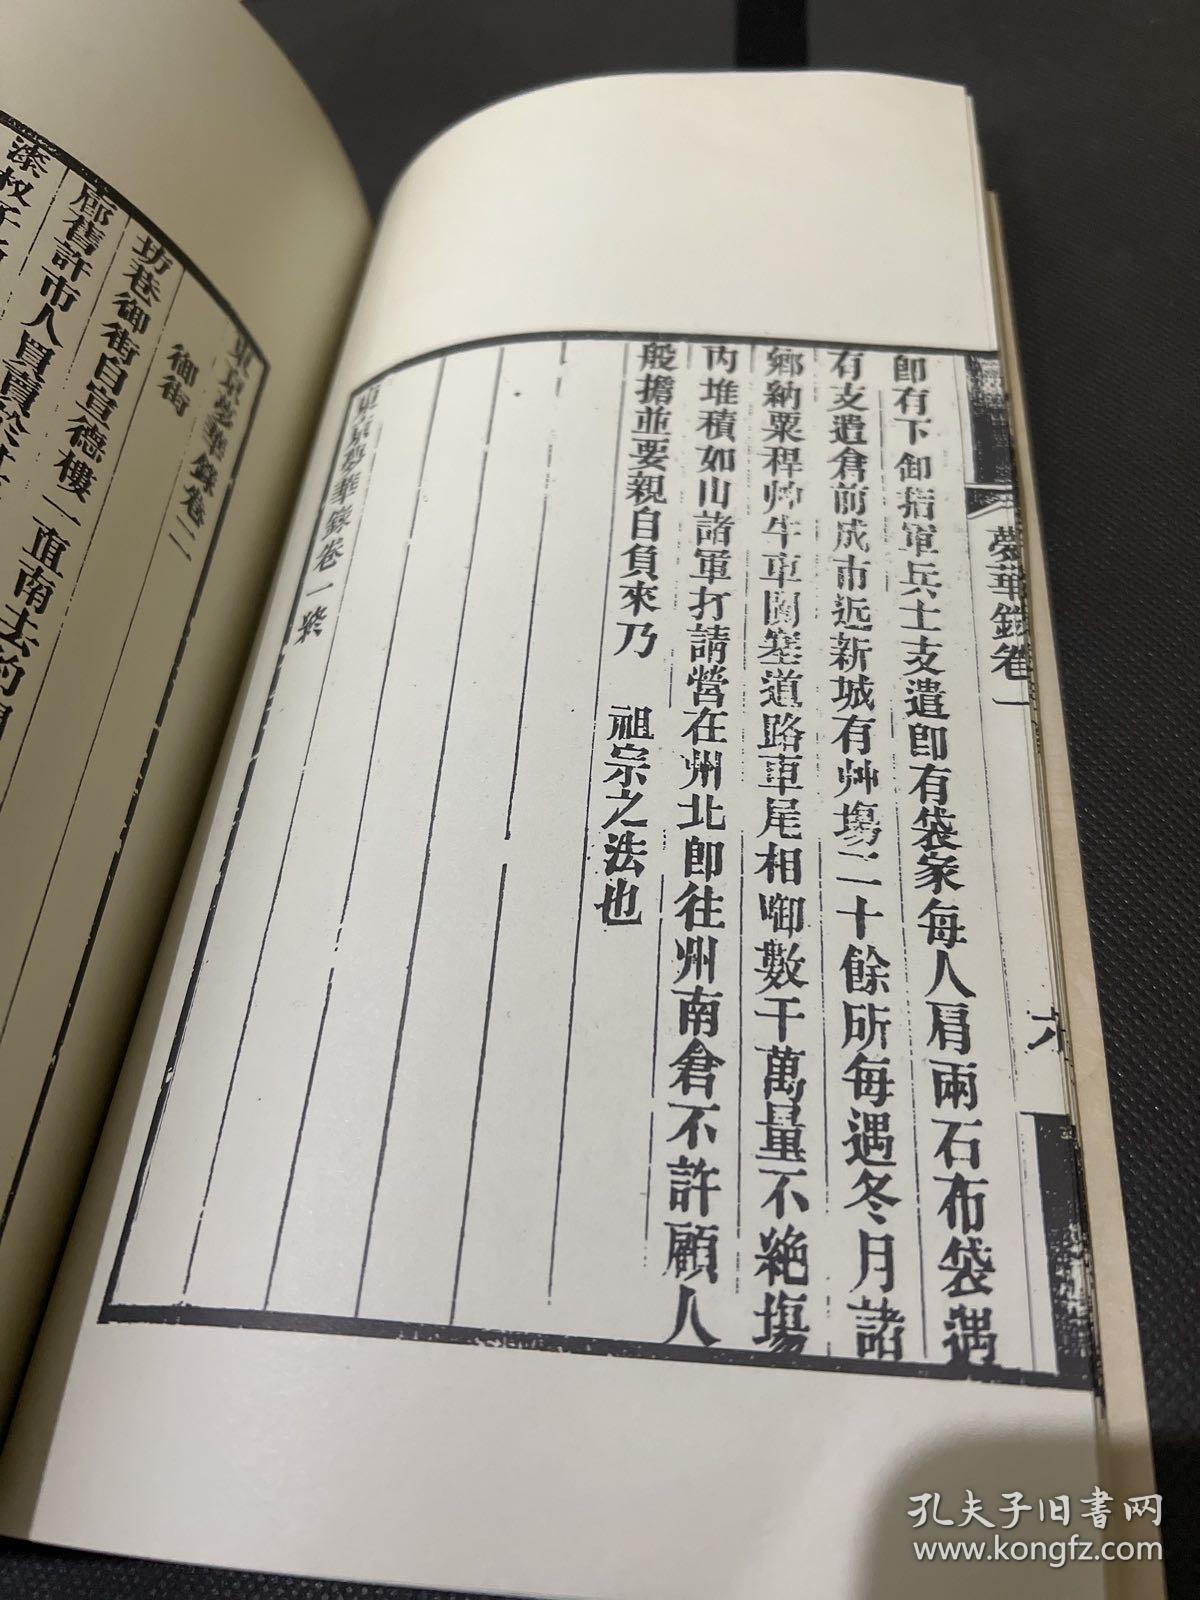 夢華錄卷一
六
卽有下卸指軍兵士支遣卽有袋家每人肩兩石布袋遇
有支遣倉前成市近新城有艸塲二十餘所每遇冬月諸
鄉納粟稈艸牛車闐塞道路車尾相啣數千萬量不絶塲
內堆積如山諸軍打請營在州北卽往州南倉不許顧人
般擔並要親自負來乃 祖宗之法也
東京夢華錄卷一終
東京夢華錄卷二
御街
坊巷御街自宣德樓一直南去約
廊舊許市人買賣於
漆杈子
孔夫子旧书网
www.kongfz.com